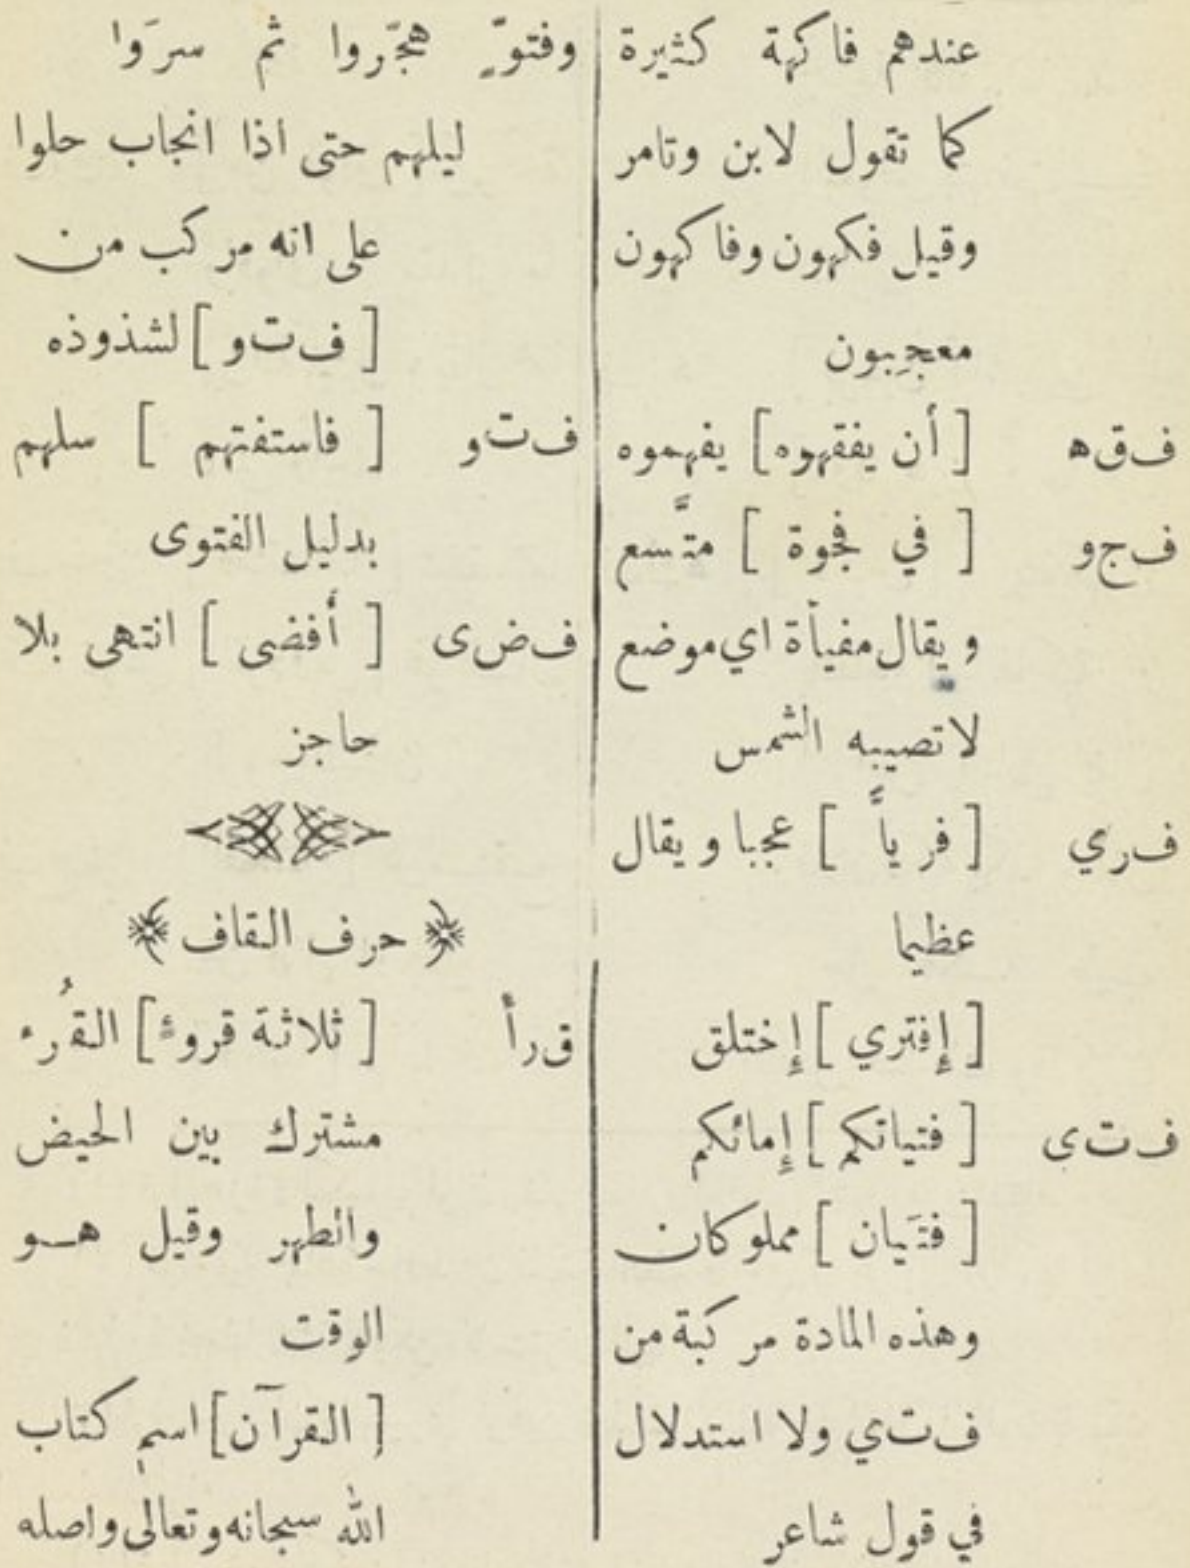 عندهم فاكهة كثيرة
كما تقول لابن وتامر
وقيل فكهون وفاكهون
معجِبون
ف ق ه [ أن يفقهوه ] يفهموه
ف ج و [ في فجوة ] متَّسع
ويقال مفيأة اي موضع
لا تصيبه الشمس
ف ر ي [ فرياً ] عجبا ويقال
عظيما
[ إفتري ] إختلق
ف ت ى [ فتياتكم ] إمائكم
[ فتَيان ] مملوكان
وهذه المادة مركبة من
ف ت ي ولا استدلال
في قول شاعر
وفتوٍّ هجّروا ثم سرَوا
ليلهم حتى اذا انجاب حلوا
على انه مركب من
[ ف ت و ] لشذوذه
ف ت و [ فاستفتهم ] سلهم
بدليل الفتوى
ف ض ى [ أفضى ] انتهى بلا
حاجز
﴿ حرف القاف ﴾
ق ر أ [ ثلاثة قروء ] القُرء
مشترك بين الحيض
والطهر وقيل هو
الوقت
[ القرآن ] اسم كتاب
الله سبحانه وتعالى واصله